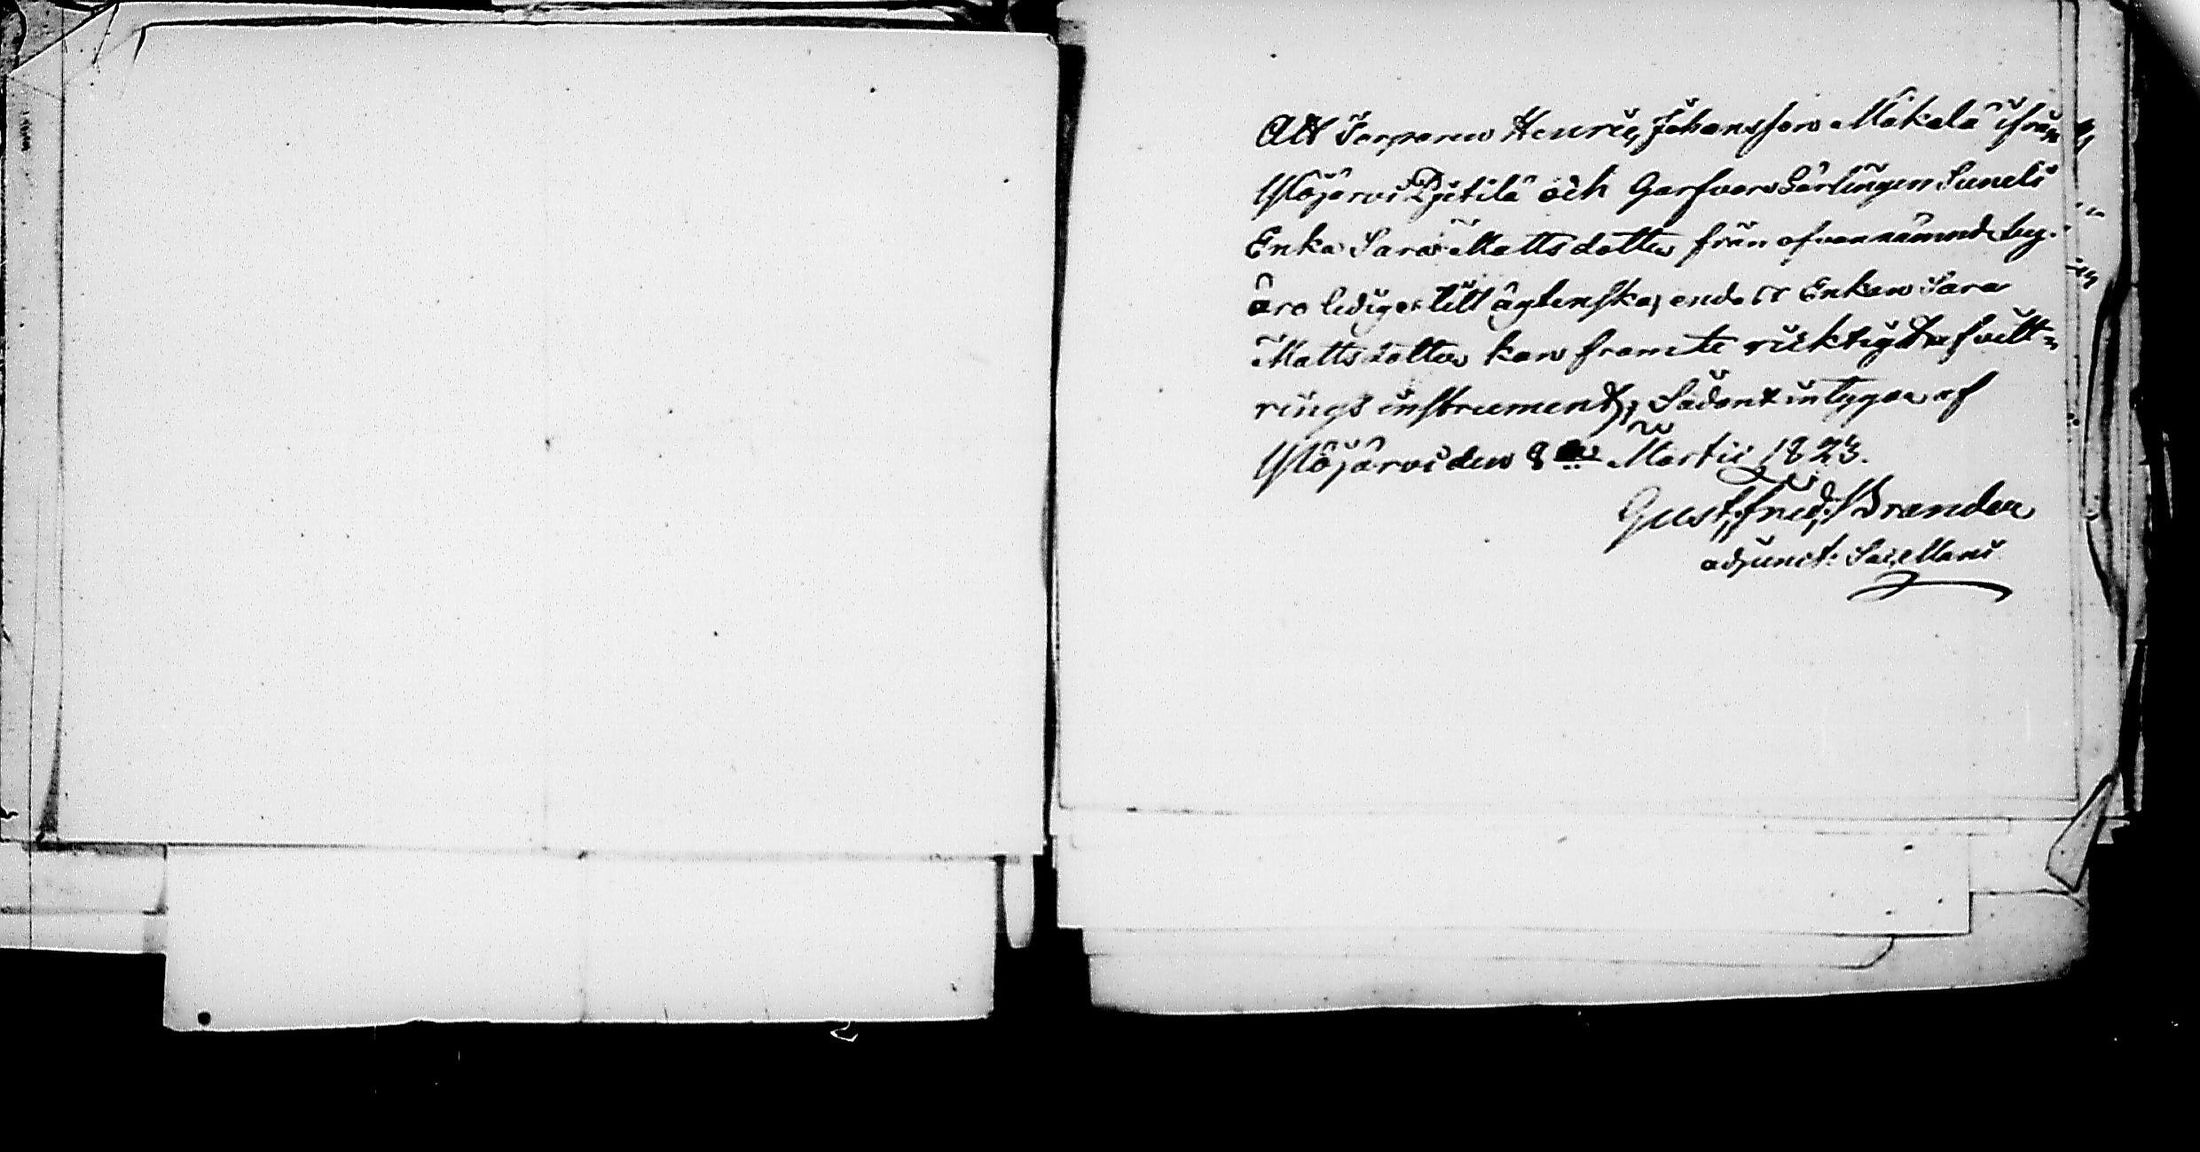 Att Torparen Henric Johansson Mäkelä ifrån
Ylöjärvi Pjetilä och Garfvare Lärlingen Sunels
Enka Sara Mattsdotter från ofvannämnde by
äro lediga till ägtenskap, endast Enkan Sara
Mattsdotter kan framte ricktigt Afvitt-
rings instrument; Sådant intygar af
Ylöjärvi den 8 Martii 1823.
Gust. Fred. Brander
adjunct: Sacellani